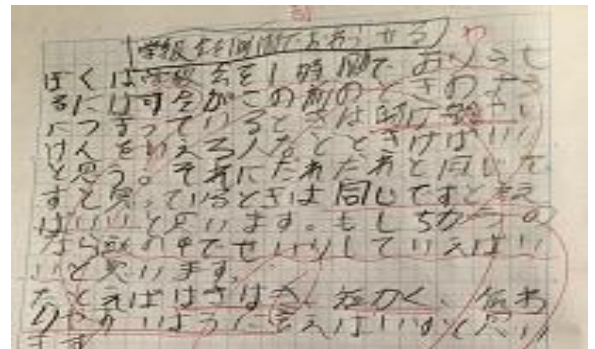 学級会を1時間でおわらせる
ぼくは学級会を1時間でおわらせ
るには司会がこの前のときのよう
につまっているときは
けんをいえる人などときけばいい
と思う。それにだれだれと同じで
すと思っているときは同じですと言え
ばいいと思います。もしちがうの
なら頭の中でせいりしていえばい
いと思います。
たとえばはきはき、短かく、伝わ
りやすいように言えばいいと思い
ます